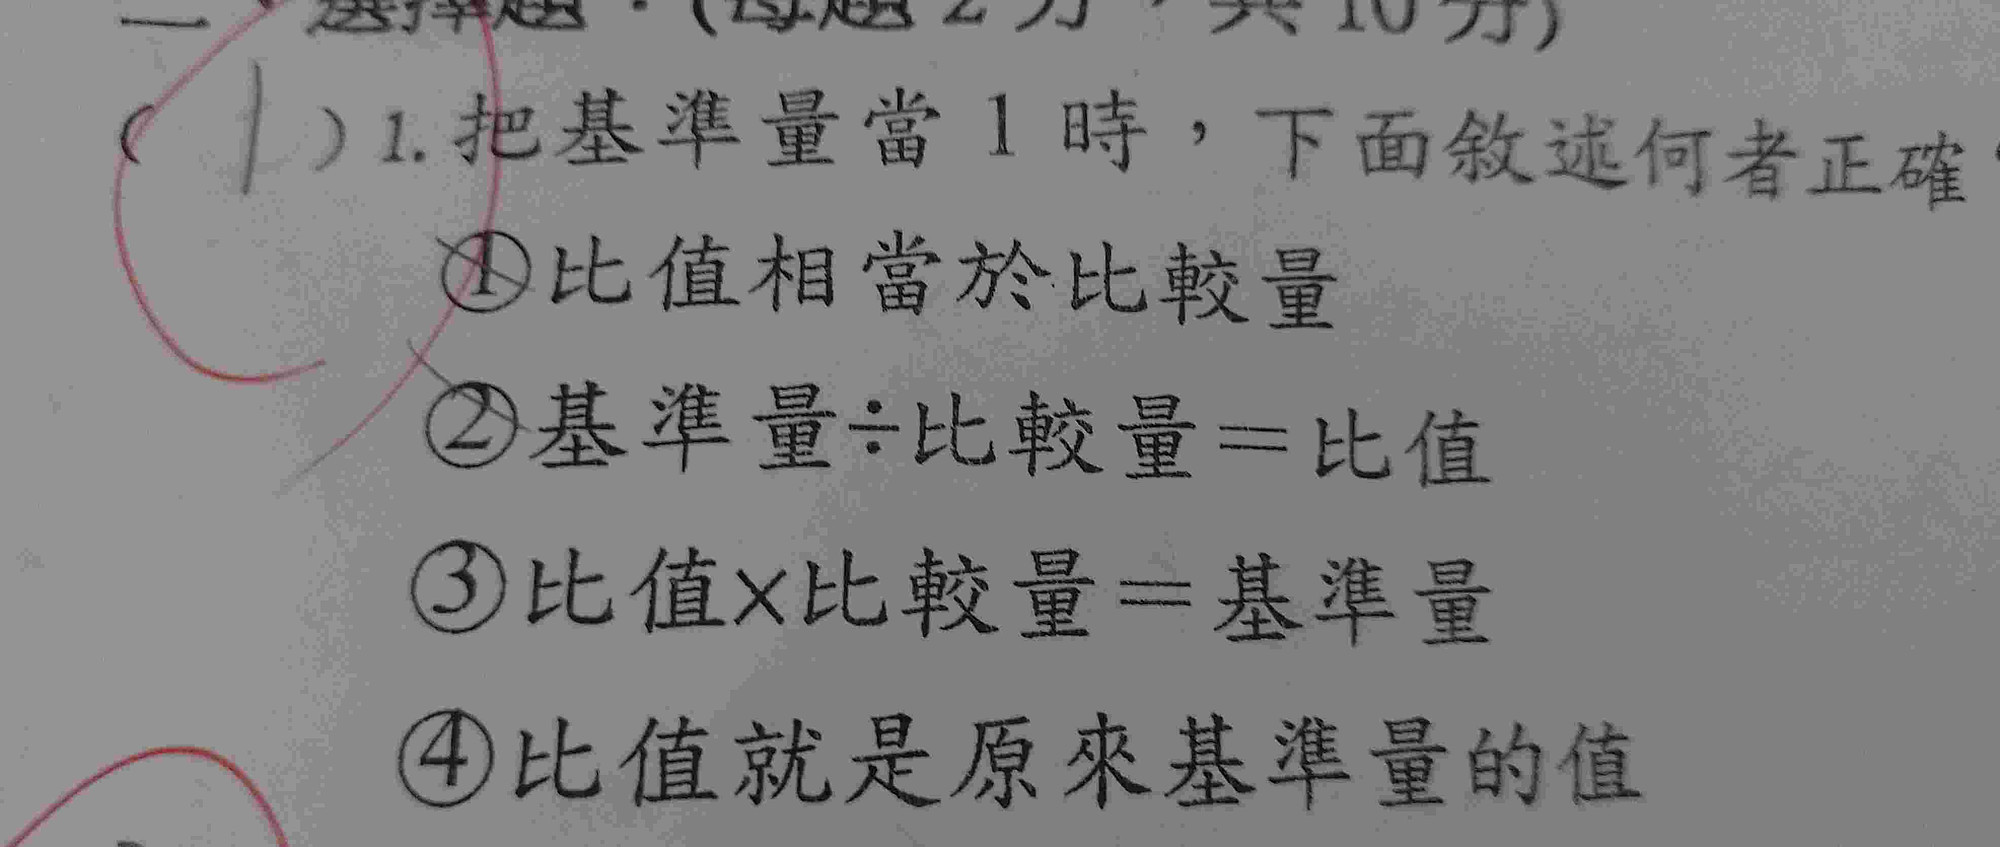 選擇題：(每題2分，共10分)
(1)1.把基準量當1時，下面敘述何者正確
①比值相當於比較量
②基準量÷比較量＝比值
③比值×比較量＝基準量
④比值就是原來基準量的值